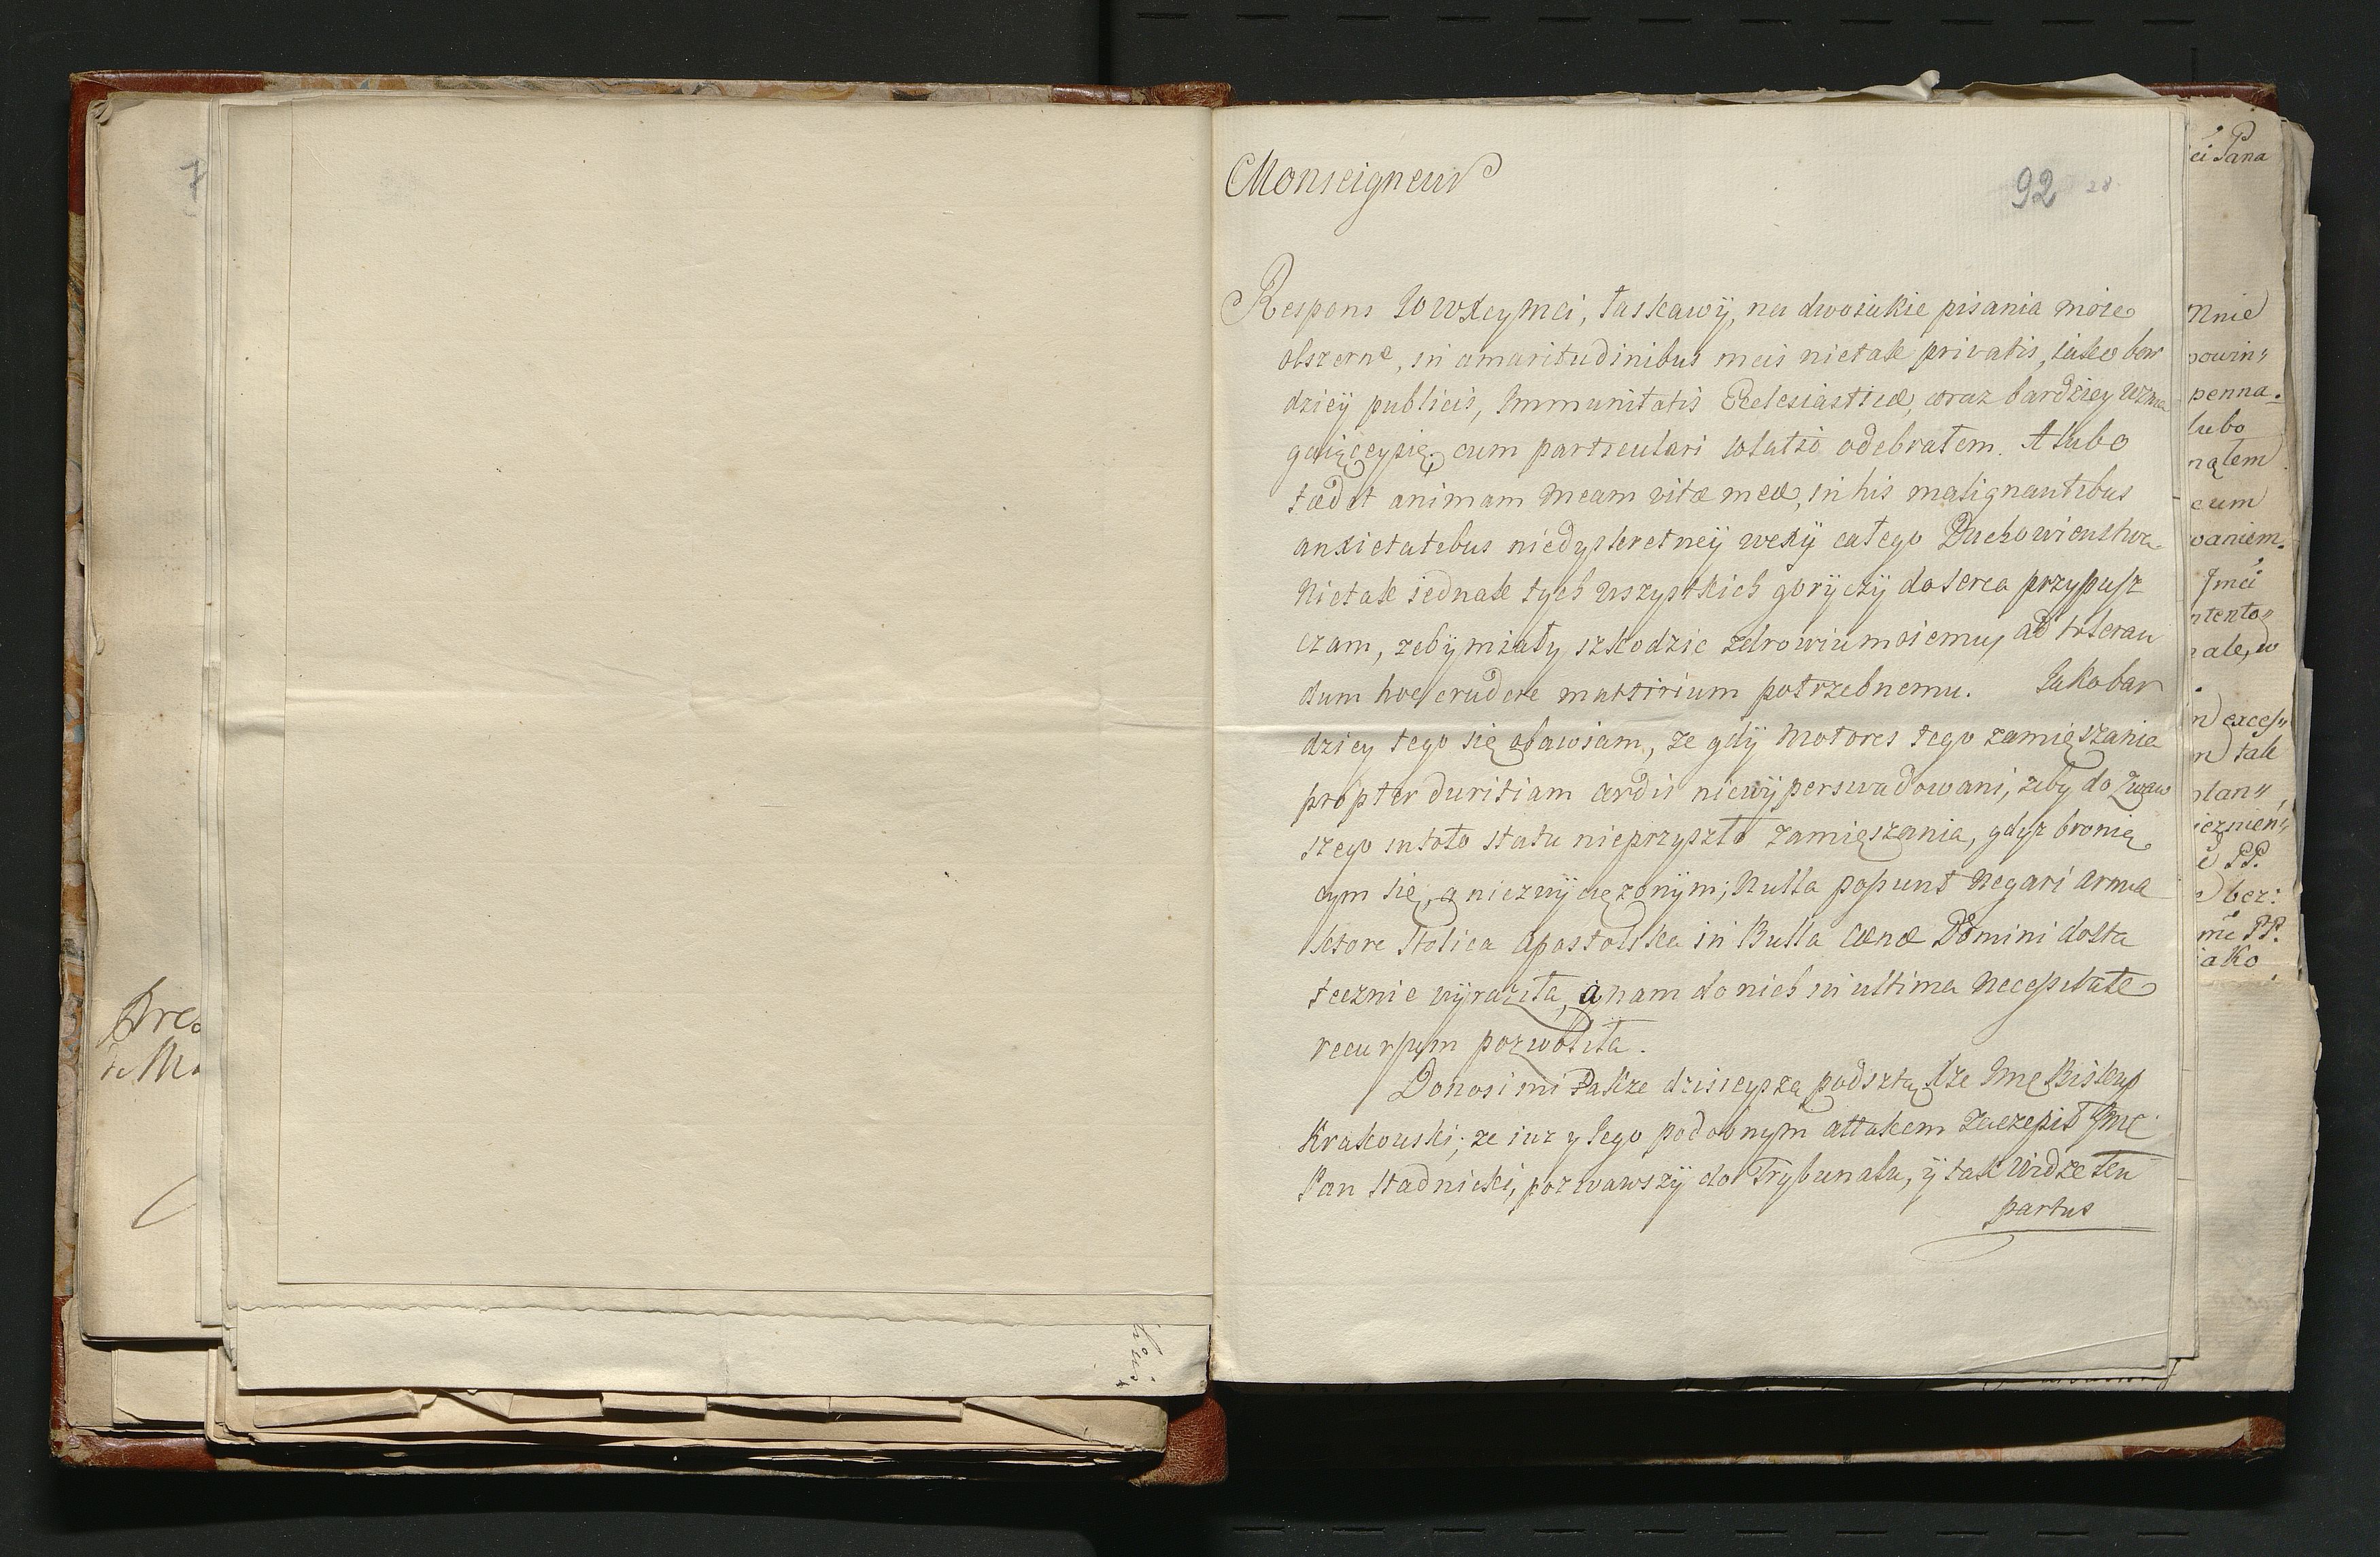 7
Monseigneur
92 28.
Respons JoWXcyMci, łaskawÿ, na dwoiakie pisania moie
obszerne, in amaritudinibus meis nietak privatis, iako bar
dzieÿ publicis, Immunitatis Ecclesiasticæ, coraz bardziey wzma
gaiąceysię, cum particulari solatio odebrałem. A lubo
tædet animam meam vitæ meæ, in his malignantibus
anxietatibus niedyskretneÿ wexÿ całego Duchowienstwa
Nietak iednak tych wszystkich gorÿczÿ do serca przypusz
czam, zebÿ miały szkodzic zdrowiu moiemu, ad toleran
dum hoc crudere martirium potrzebnemu. Jako bar
dziey tego się obawiam, ze gdÿ Motores tego zamięszania
propter duritiam cordis niewÿperswadowani, zeby do
szego in toto statu nieprzyszło zamięszania, gdyz bronią
cym się, a niezwÿcięzonÿm; Nulla possunt Negari Arma
ktore Stolica Apostolska in Bulla Cœnæ Domini dosta
tecznie wÿraziła, a nam do nich in ultima Necessitate
recursum pozwoliła.
Donosi mi także dzisieysza pocztą Xze Jmę Biskup
Krakowski; ze iuz y Jego podobnym attakem zaczepił Jmę
Pan Stadnicki, pozwawszÿ do Trybunału, ÿ tak Widzę ten
partus
ei Pana
Mnie
powin"
penna.
lubo
nąłem
cum
waniem.
Jmci
ntento"
ale, w
exces"
tak
plan"
PP.
bez:
PP.
iako